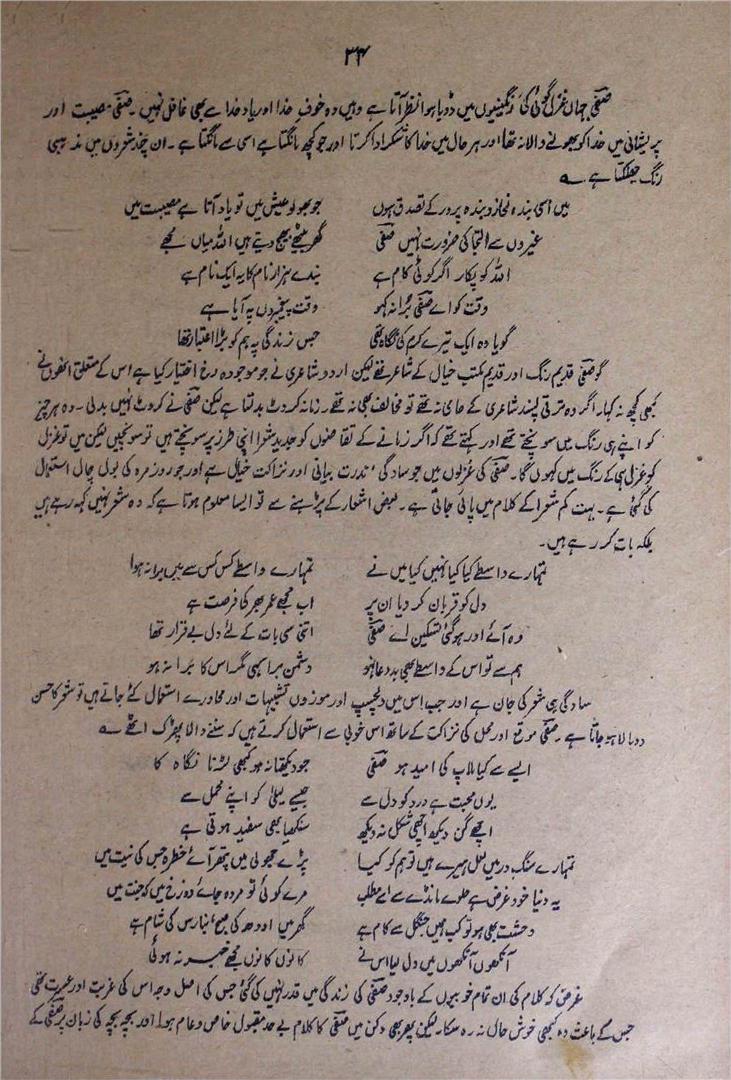 ۳۴
صفی جہاں غزل گوئی کی رنگینیوں میں ڈوبا ہوا نظر آتا ہے وہیں وہ خوفِ خدا اور یادِ خدا سے بھی غافل نہیں ۔ صفی مصیبت اور
پریشانی میں خدا کو بھولنے والا نہ تھا اور ہر حال میں خدا کا شکر ادا کرتا اور جو کچھ مانگتا ہے اسی سے مانگتا ہے ۔ ان چند شعروں میں مذہبی
رنگ جھلکتا ہے ؎
میں اسی بندہ نواز و بندہ پرور کے تصدق ہوں جو بھولو عیش میں تو یاد آتا ہے مصیبت میں
غیروں سے التجا کی ضرورت نہیں صفی گھر بیٹھے بھیج دیتے ہیں اللہ میاں مجھے
اللہ کو پکار اگر کوئی کام ہے بندے ہزار نام کا یہ ایک نام ہے
وقت کو اے صفی برا نہ کہو وقت پیغمبروں پہ آیا ہے
گویا وہ ایک تیرے کرم کی نگاہ تھی جس زندگی پہ ہم کو بڑا اعتبار تھا
گو صفی قدیم رنگ اور قدیم مکتب خیال کے شاعر تھے لیکن اردو شاعری نے جو موجودہ رخ اختیار کیا ہے اس کے متعلق انھوں نے
کبھی کچھ نہ کہا ۔ اگر وہ ترقی پسند شاعری کے حامی نہ تھے تو مخالف بھی نہ تھے ۔ زمانہ کروٹ بدلتا ہے لیکن صفی نے کروٹ نہیں بدلی ۔ وہ ہر چیز
کو اپنے ہی رنگ میں سونچتے تھے اور کہتے تھے کہ اگر زمانے کے تقاضوں کو جدید شعرا اپنی طرز پر سونچتے ہیں تو سونچیں لیکن میں تو غزل
کو غزل ہی کے رنگ میں کہوں گا ۔ صفی کی غزلوں میں جو سادگی ، ندرت بیانی اور نزاکت خیال ہے اور جو روزمرہ کی بول چال استعمال
کی گئی ہے ۔ بہت کم شعرا کے کلام میں پائی جاتی ہے ۔ بعض اشعار کے پڑھنے سے تو ایسا معلوم ہوتا ہے کہ وہ شعر نہیں کہہ رہے ہیں
بلکہ بات کر رہے ہیں ۔
تمہارے واسطے کیا کیا نہیں کیا میں نے تمہارے واسطے کس کس سے میں برا نہ ہوا
دل کو قربان کر دیا ان پر اب مجھے عمر بھر کا فرصت ہے
وہ آئے اور ہو گئی تسکین اے صفی اتنی سی بات کے لئے دل بے قرار تھا
ہم سے تو اس کے واسطے بھی بد دعا نہ ہو دشمن برا سہی مگر اس کا برا نہ ہو
سادگی ہی شعر کی جان ہے اور جب اس میں دلچسپ اور موزوں تشبیہات اور محاورے استعمال کئے جاتے ہیں تو شعر کا حسن
دوبالا ہو جاتا ہے ۔ صفی موقع اور محل کی نزاکت کے ساتھ اس خوبی سے استعمال کرتے ہیں کہ سننے والا پھڑک اٹھے ؎
ایسے سے کیا ملاپ کی امید ہو صفی جو دیکھتا نہ ہو کبھی لڑنا نگاہ کا
یوں محبت ہے درد کو دل سے جیسے لیلیٰ کو اپنے محمل سے
اچھے گن دیکھ اچھی شکل نہ دیکھ سنکھیا بھی سفید ہوتی ہے
تمہارے سنگِ در میں لعل ہیرے ہیں تو ہم کو کیا پڑے جھولی میں پتھر آئے خطرہ جس کی نیت میں
یہ دنیا خود غرض ہے حلوے مانڈے سے اسے مطلب مرے کوئی تو مردہ جائے دوزخ میں کہ جنت میں
وحشت بھی ہو تو کب ہمیں جنگل سے کام ہے گھر میں اودھ کی صبح ، بنارس کی شام ہے
آنکھوں آنکھوں میں دل لیا اس نے کانوں کانوں مجھے خبر نہ ہوئی
غرض کہ کلام کی ان تمام خوبیوں کے باوجود صفی کی زندگی میں قدر نہیں کی گئی جس کی اصل وجہ اس کی غربت اور غیرت تھی
جس کے باعث وہ کبھی خوش حال نہ رہ سکا ۔ لیکن پھر بھی دکن میں صفی کا کلام بے حد مقبول خاص و عام ہوا اور بچہ بچہ کی زبان پر صفی کے